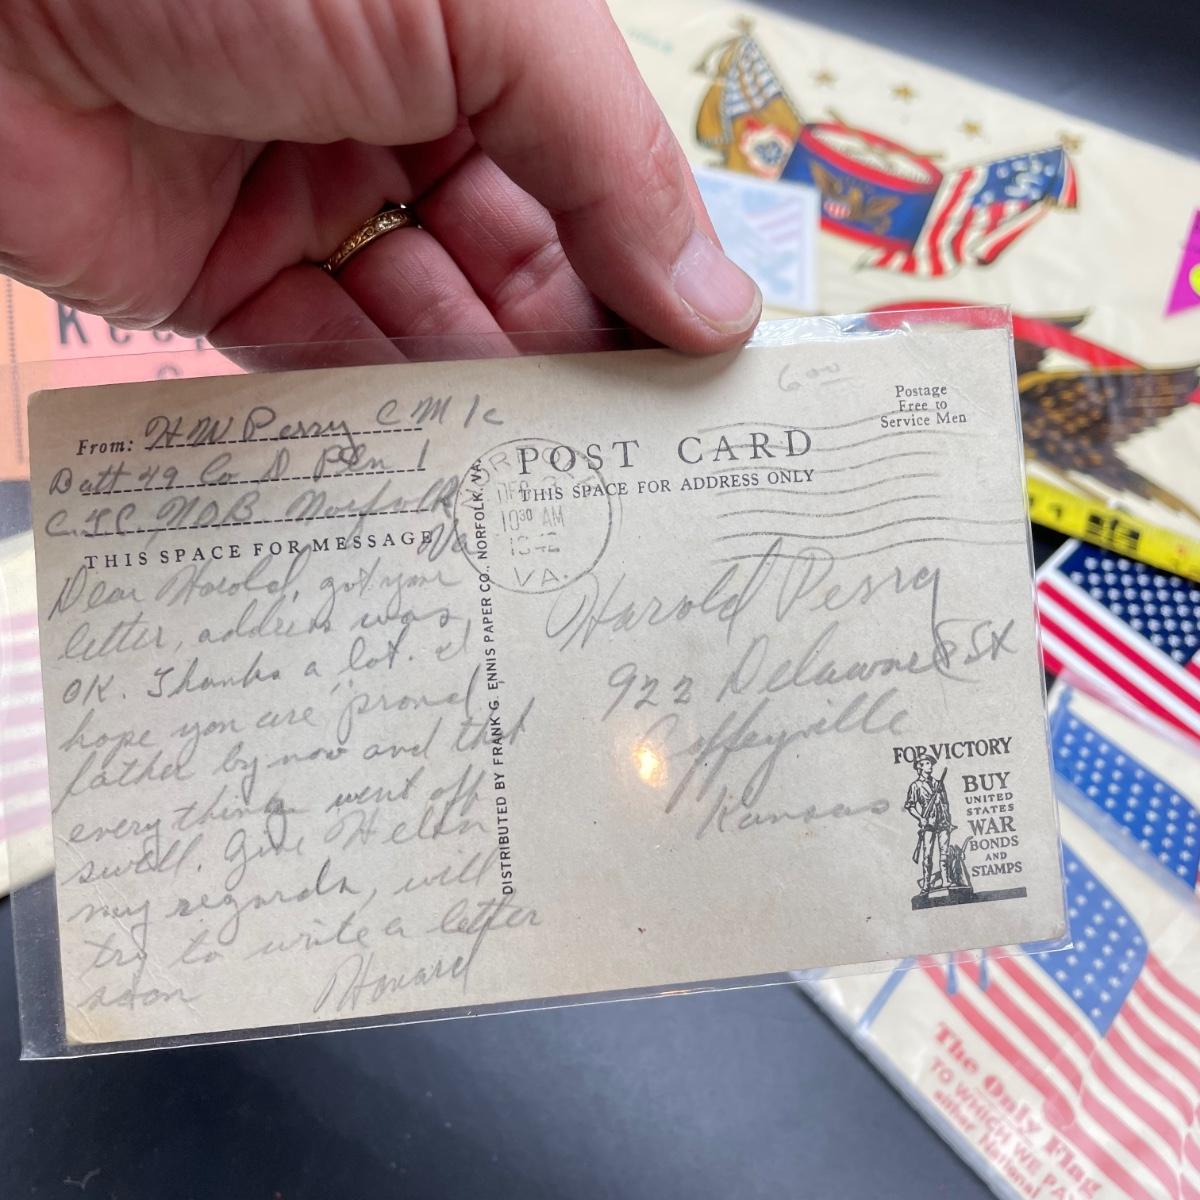 From: H W Perry C M 1c
Batt 49 Co D Pltn 1
C.T.C. N.O.B. Norfolk
Va
THIS SPACE FOR MESSAGE
Dear Harold, got your
letter, address was
OK. Thanks a lot. I
hope you are "proud
father by now and that
everything went off
swell. Give Helen
my regards, will
try to write a letter
soon
Howard
DISTRIBUTED BY FRANK G. ENNIS PAPER CO., NORFOLK, VA.
6 00
Postage
Free to
Service Men
POST CARD
THIS SPACE FOR ADDRESS ONLY
10 30 AM
VA.
Harold Perry
922 Delaware
Coffeyville
Kansas
FOR VICTORY
BUY
UNITED
STATES
WAR
BONDS
AND
STAMPS
The Only Flag
TO WHICH WE